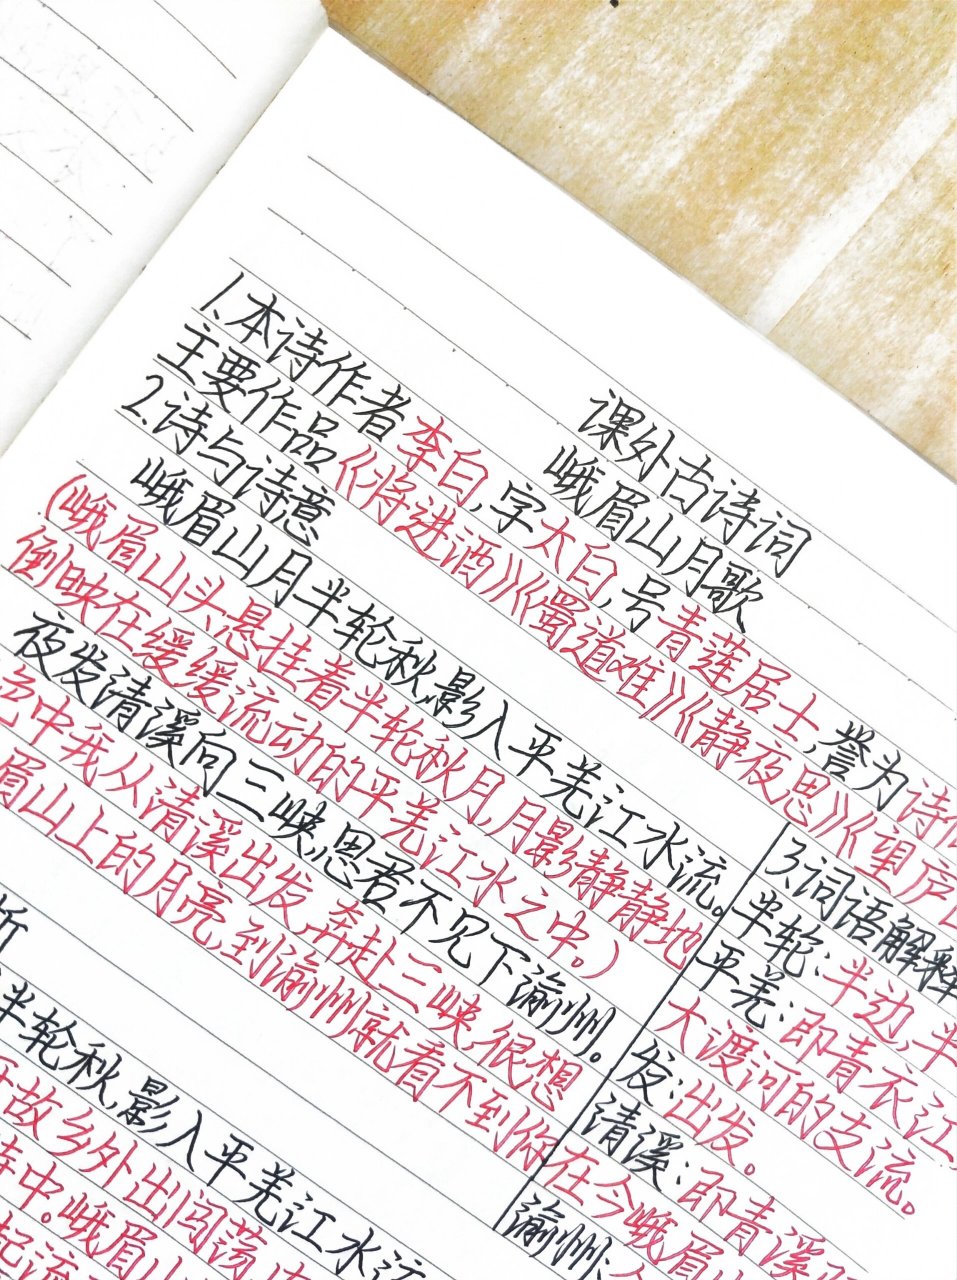 课外古诗词
峨眉山月歌
1.本诗作者李白,字太白,号青莲居士,誉为诗
主要作品《将进酒》《蜀道难》《静夜思》《望庐
2.诗与诗意
峨眉山月半轮秋,影入平羌江水流。
(峨眉山头悬挂着半轮秋月,月影静静地
倒映在缓缓流动的平羌江水之中。)
夜发清溪向三峡,思君不见下渝州。
色中我从清溪出发,奔赴三峡,很想
眉山上的月亮,到渝州就看不到你
3.词语解释
半轮:半边,半
平羌:即青衣江,
大渡河的支流。
发:出发。
清溪:即青溪
在今峨眉
渝州:今
析
半轮秋,影入平羌江水流
故乡外出闯荡,
诗中。峨眉山
起流